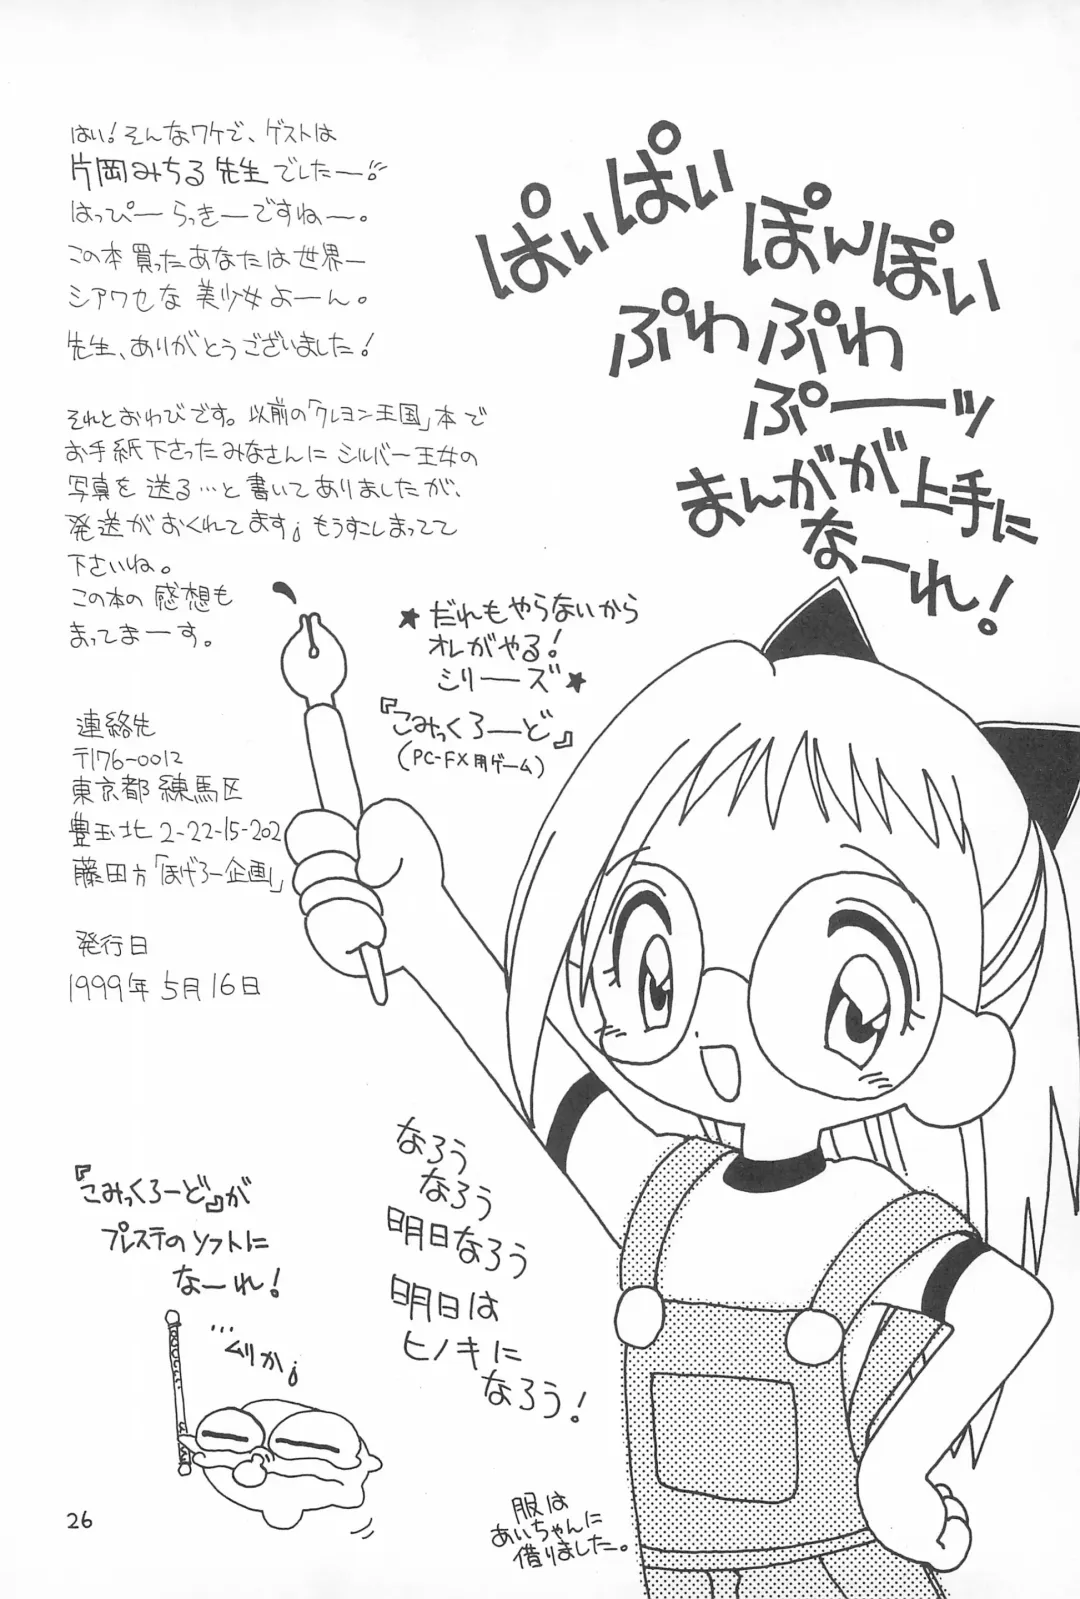 はい！そんなワケで、ゲストは
片岡みちる先生でしたー！
はっぴーらっきーですねー。
この本買ったあなたは世界一
シアワセな美少女よーん。
先生、ありがとうございました！
それとおわびです。以前の「クレヨン王国」本で
お手紙下さったみなさんにシルバー王女の
写真を送る…と書いてありましたが、
発送がおくれてます。もうすこしまってて
下さいね。
この本の感想も
まってまーす。
連絡先
〒176-0012
東京都練馬区
豊玉北2-22-15-202
藤田方「ほげろー企画」
発行日
1999年5月16日
ぱいぱいぽんぽい
ぷわぷわ
ぷーッ
まんがが上手に
なーれ！
★だれもやらないから
オレがやる！
シリーズ★
『こみっくろーど』
(PC-FX用ゲーム)
なろう
なろう
明日なろう
明日は
ヒノキに
なろう！
『こみっくろーど』が
プレステのソフトに
なーれ！
…ムリか。
服は
あいちゃんに
借りました。
26